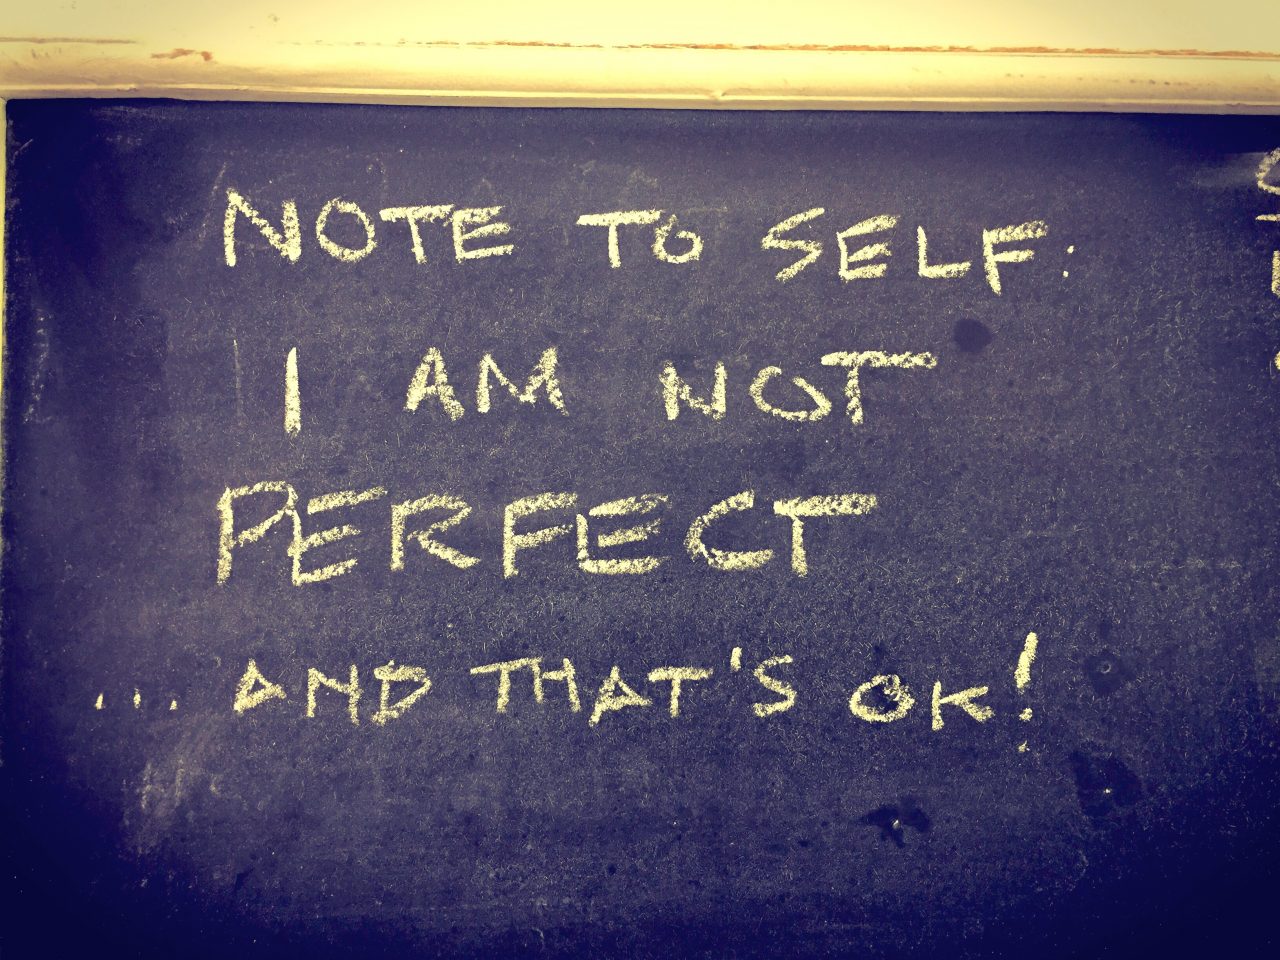 NOTE TO SELF:
I AM NOT
PERFECT
... AND THAT'S OK!